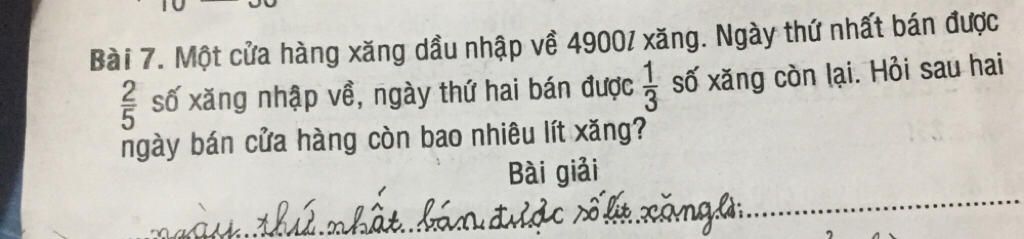 10 30
Bài 7. Một cửa hàng xăng dầu nhập về 4900l xăng. Ngày thứ nhất bán được
2/5 số xăng nhập về, ngày thứ hai bán được 1/3 số xăng còn lại. Hỏi sau hai
ngày bán cửa hàng còn bao nhiêu lít xăng?
Bài giải
ngày thứ nhất bán được số lít xăng là: